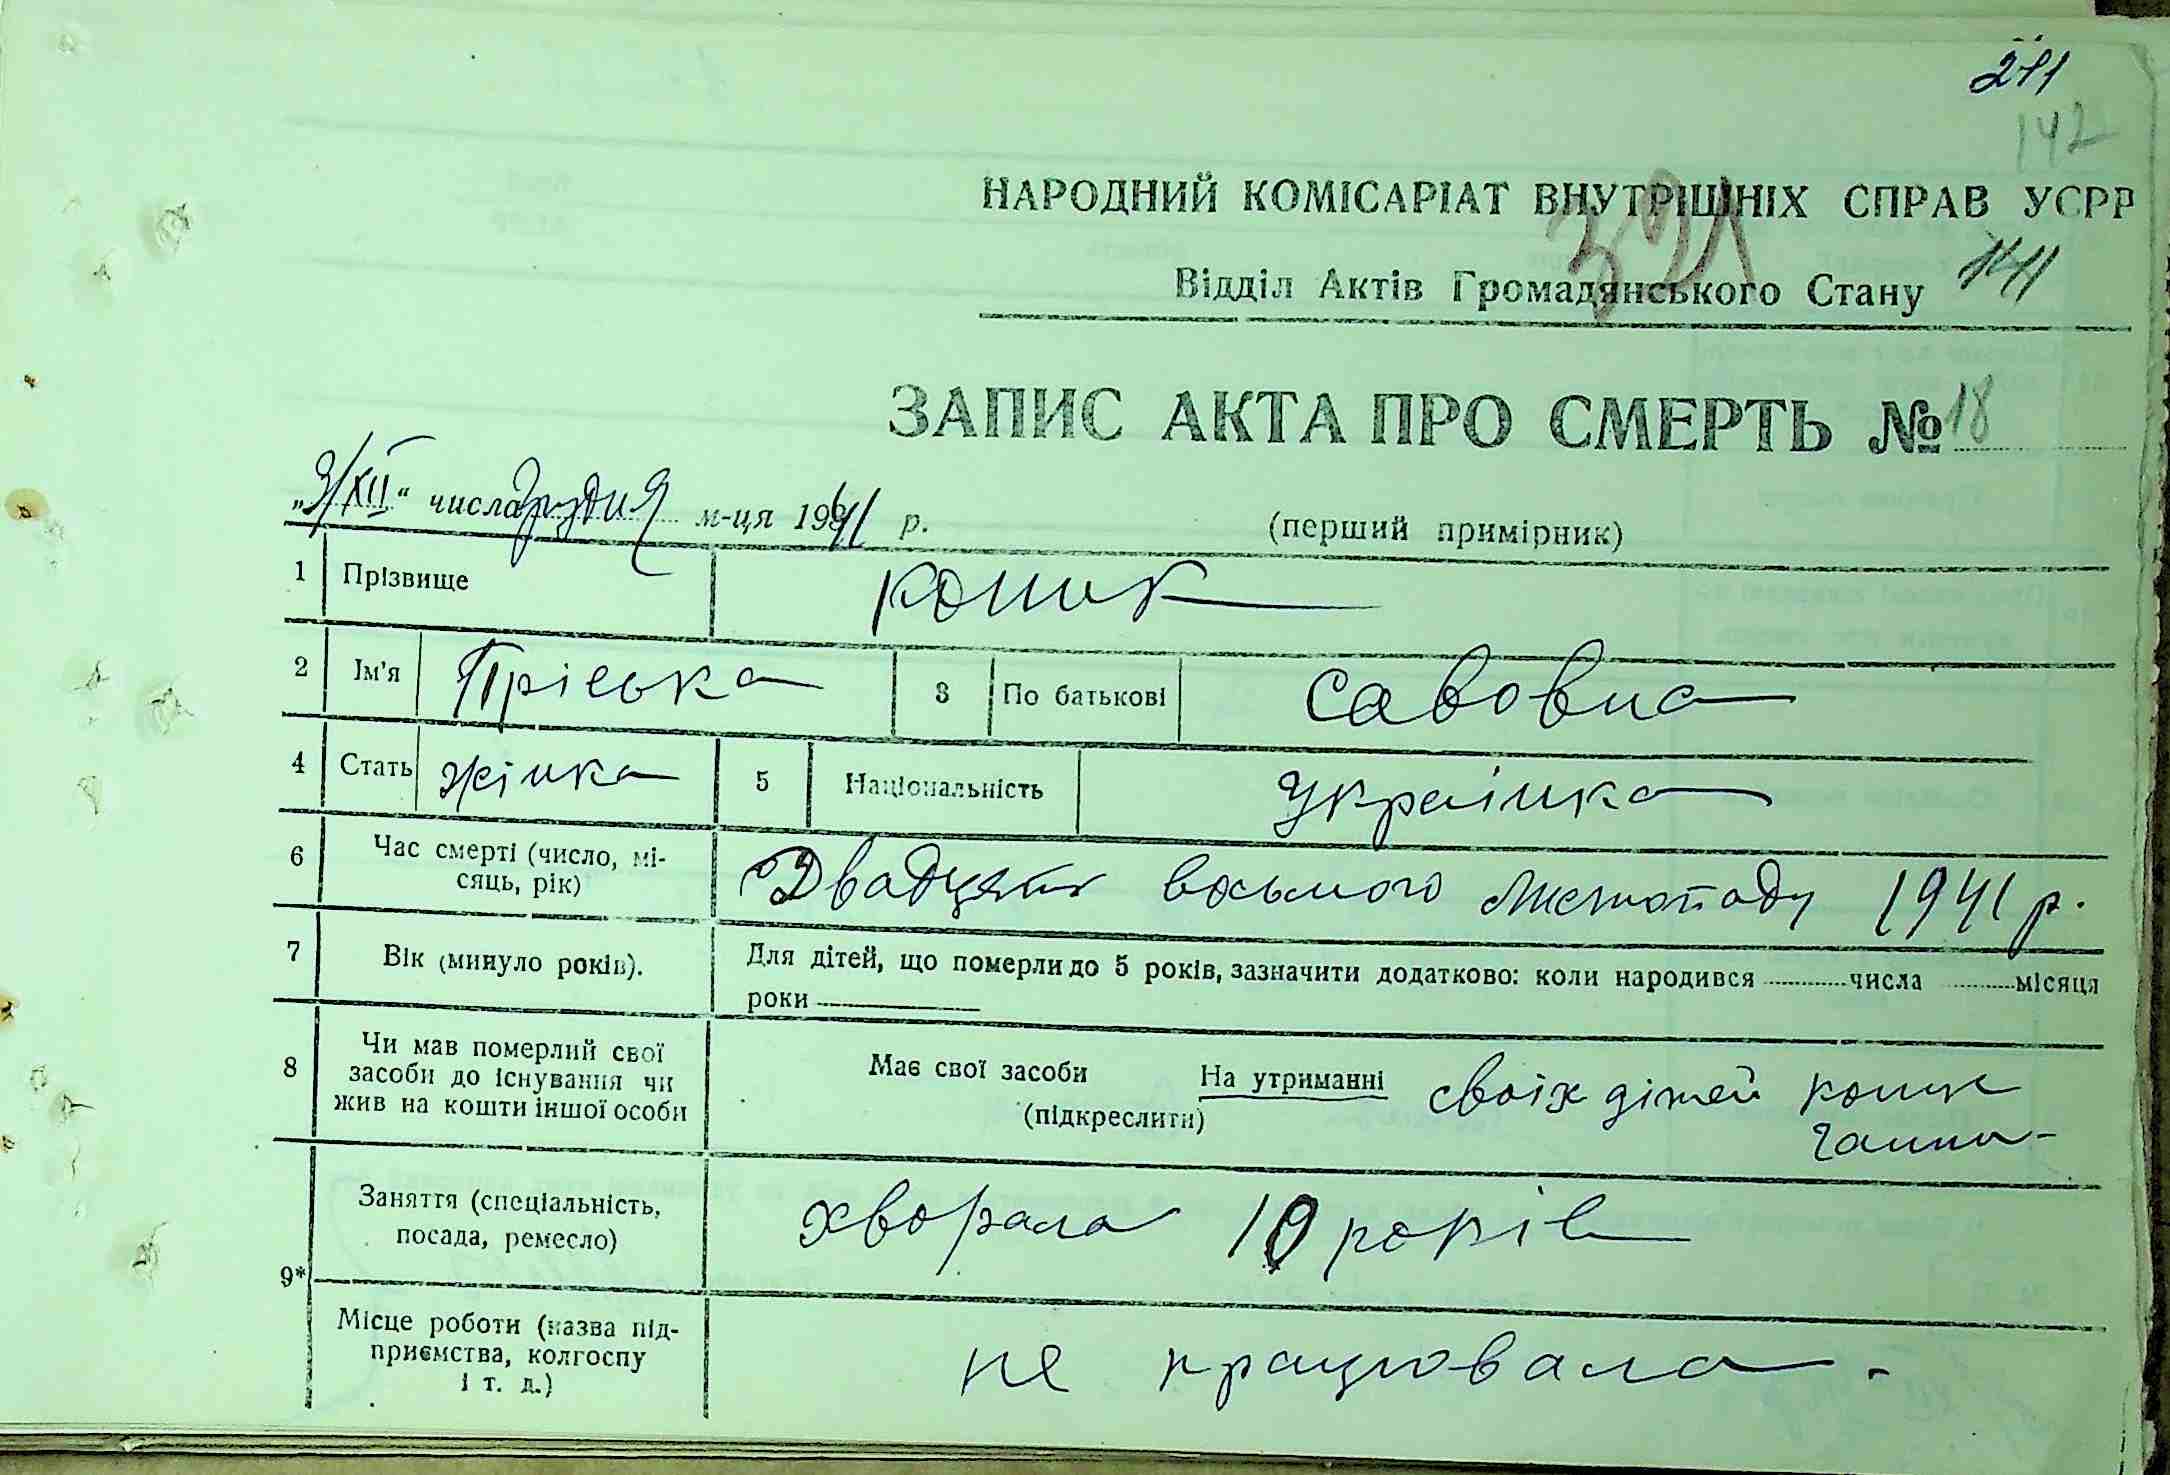 211
142
НАРОДНИЙ КОМІСАРІАТ ВНУТРІШНІХ СПРАВ УСРР
321
Відділ Актів Громадянського Стану 141
ЗАПИС АКТА ПРО СМЕРТЬ № 18
„3/XII“ числа грудня м-ця 1941 р. (перший примірник)
1 Прізвище Кошик
2 Ім'я Пріська 3 По батькові Савовна
4 Стать жінка 5 Національність Українка
6 Час смерті (число, мі-
сяць, рік) Двадцять восьмого листопаду 1941 р.
7 Вік (минуло років). Для дітей, що померли до 5 років, зазначити додатково: коли народився числа місяця
роки
8 Чи мав померлий свої
засоби до існування чи
жив на кошти іншої особи Має свої засоби На утриманні своїх дітей Кошик
(підкреслити) Ганни
9* Заняття (спеціальність,
посада, ремесло) хворала 10 років
Місце роботи (назва під-
приємства, колгоспу
і т. д.) не працювала.